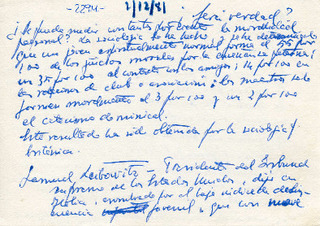 - 229M - 1/12/81
Será verdad?
¿Se puede medir un tantos por ciento la moralidad
personal? Un sociólogo lo ha hecho y lo ha
que un joven espiritualmente normal forma el 55 por
100 de los juicios morales por la enseñanza
un 35 por 100 al contacto con los amigos; 14 por 100 en
las relaciones de club o asociación; los maestros solo
forman moralmente el 3 por 100 y un 2 por 100
el catecismo dominical.
Este resultado ha sido obtenido por la sociología
británica.
Samuel Leibowitz - Presidente del Tribunal
supremo de los Estados Unidos, dijo en
Italia, asombrado por el bajo índice de delin-
cuencia juvenil, que con